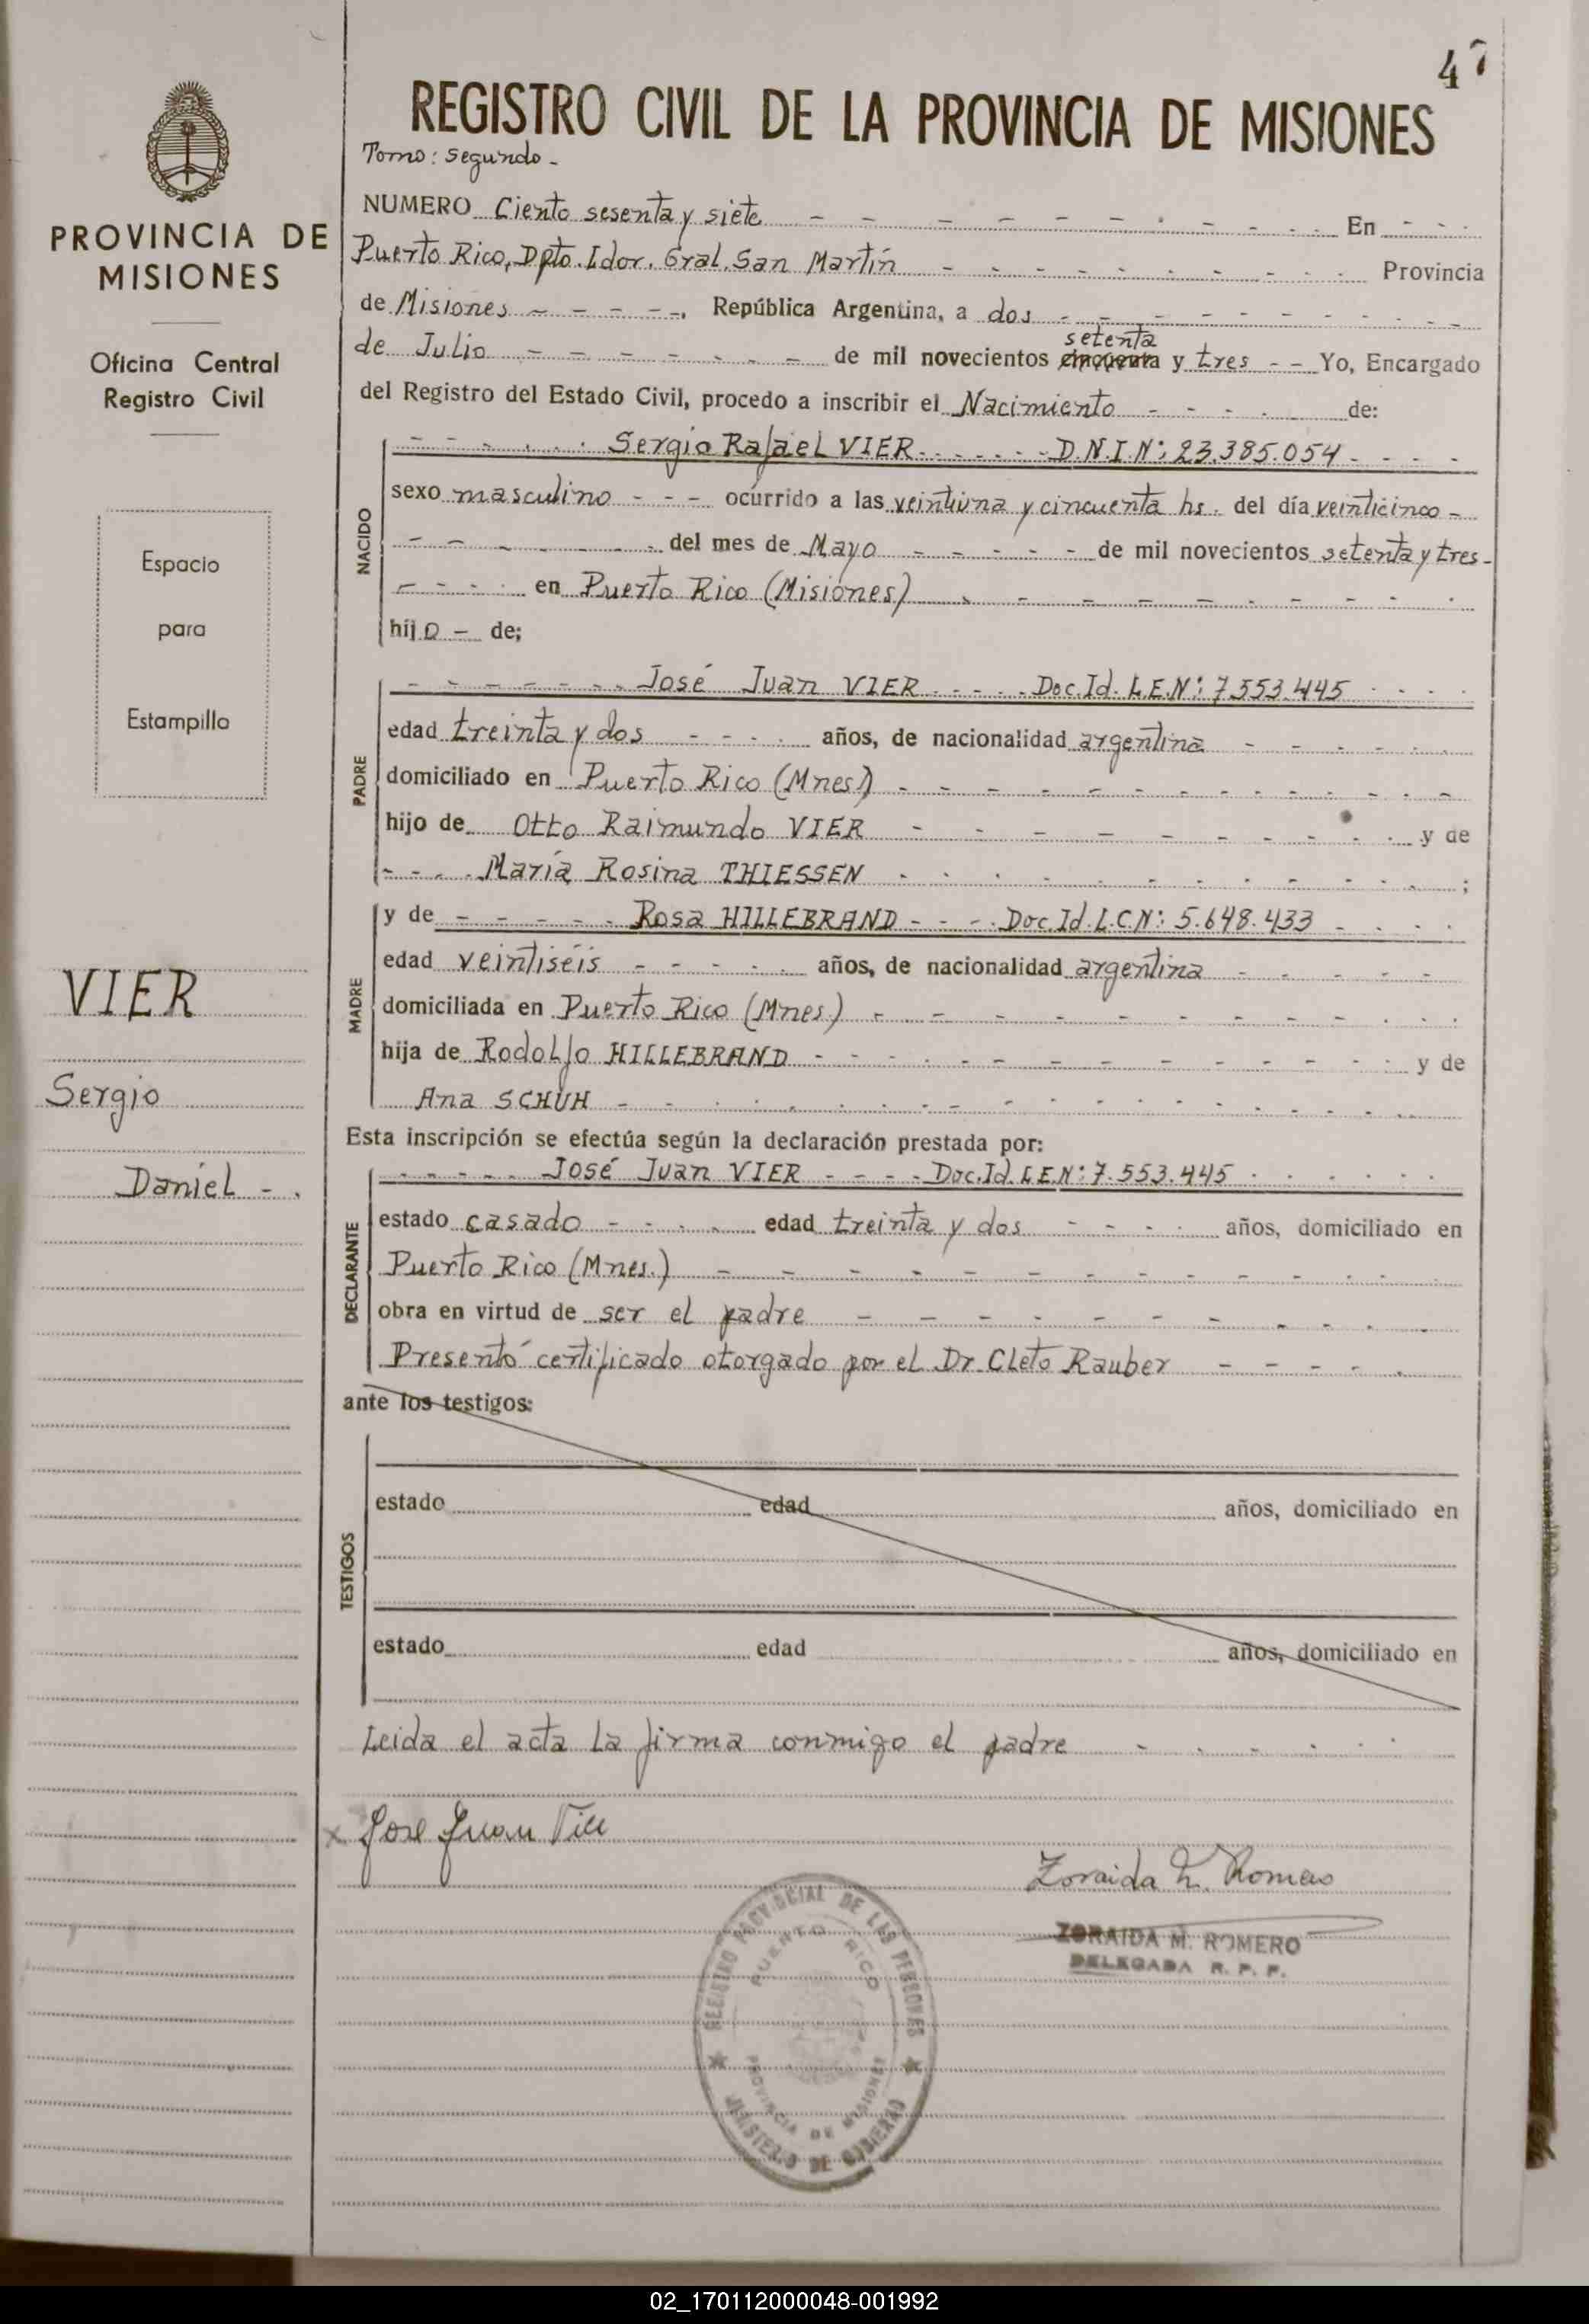 47
REGISTRO CIVIL DE LA PROVINCIA DE MISIONES
Tomo: Segundo -
PROVINCIA DE
MISIONES
Oficina Central
Registro Civil
Espacio
para
Estampilla
VIER
Sergio
Daniel - .
NUMERO Ciento sesenta y siete - - - - - - - - En - - -
Puerto Rico, Dpto. Ldor. Gral. San Martín - - - - - - - - Provincia
de Misiones - - - - -, República Argentina, a dos - - - - - - - -
setenta
de Julio - - - - - - - de mil novecientos cincuenta y tres - - Yo, Encargado
del Registro del Estado Civil, procedo a inscribir el Nacimiento - - - - de:
NACIDO
- - - - - - Sergio Rafael VIER - - - - - - D.N.I.N: 23.385.054 - - - -
sexo masculino - - - ocurrido a las veintiuna y cincuenta hs. del día veinticinco -
- - - - - - del mes de Mayo - - - - - de mil novecientos setenta y tres -
- - - - en Puerto Rico (Misiones) - - - - - - - - -
hijo - de;
PADRE
- - - - - - José Juan VIER - - - - Doc. Id. L.E.N: 7.553.445 - - - -
edad treinta y dos - - - - años, de nacionalidad argentina - - - - -
domiciliado en Puerto Rico (Mnes.) - - - - - - - - - - - -
hijo de Otto Raimundo VIER - - - - - - - - - y de
- - - María Rosina THIESSEN - - - - - - - - - - ;
MADRE
y de - - - - - Rosa HILLEBRAND - - - - Doc. Id. L.C.N: 5.648.433 - - - -
edad veintiséis - - - - - años, de nacionalidad argentina - - - - -
domiciliada en Puerto Rico (Mnes.) - - - - - - - - - - -
hija de Rodolfo HILLEBRAND - - - - - - - - - - y de
Ana SCHUH - - - - - - - - - - - - - -
Esta inscripción se efectúa según la declaración prestada por:
DECLARANTE
- - - - - José Juan VIER - - - - Doc. Id. L.E.N: 7.553.445 - - - - -
estado casado - - - - edad treinta y dos - - - - años, domiciliado en
Puerto Rico (Mnes.) - - - - - - - - - - - -
obra en virtud de ser el padre - - - - - - - - -
Presentó certificado otorgado por el Dr. Cleto Rauber - - - - -
ante los testigos:
TESTIGOS
estado edad años, domiciliado en
estado edad años, domiciliado en
Leida el acta la firma conmigo el padre - - - - - -
x Jose Juan Vier
Zoraida M. Romero
ZORAIDA M. ROMERO
DELEGADA R. P. P.
REGISTRO PROVINCIAL DE LAS PERSONAS
PUERTO RICO
PROVINCIA DE MISIONES
MINISTERIO DE GOBIERNO
02_170112000048-001992